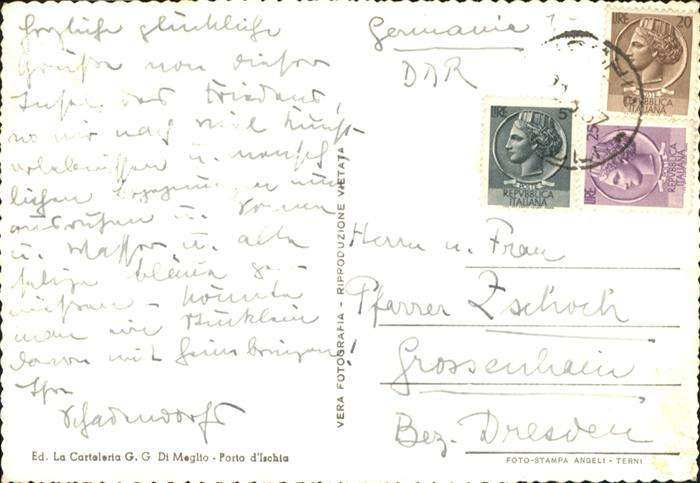 Herzliche glückliche
Grüße von dieser
Insel des Friedens,
wo wir nach viel Kunst-
erlebnissen u. mensch-
lichen Begegnungen nun
ausruhen u. Sonne
u. Wasser u. alle
selige Bläue ge-
niessen – könnte
man ein Stücklein
davon mit heimbringen!
Ihre
Schadendorfs
Ed. La Carteleria G. G. Di Meglio - Porto d'Ischia
VERA FOTOGRAFIA - RIPRODUZIONE VIETATA
Germania
DDR
LIRE 20
REPVBBLICA
ITALIANA
LIRE 5
REPVBBLICA
ITALIANA
LIRE 25
REPVBBLICA
ITALIANA
Herrn u. Frau
Pfarrer Zschoch
Grossenhain
Bez. Dresden
FOTO-STAMPA ANGELI - TERNI